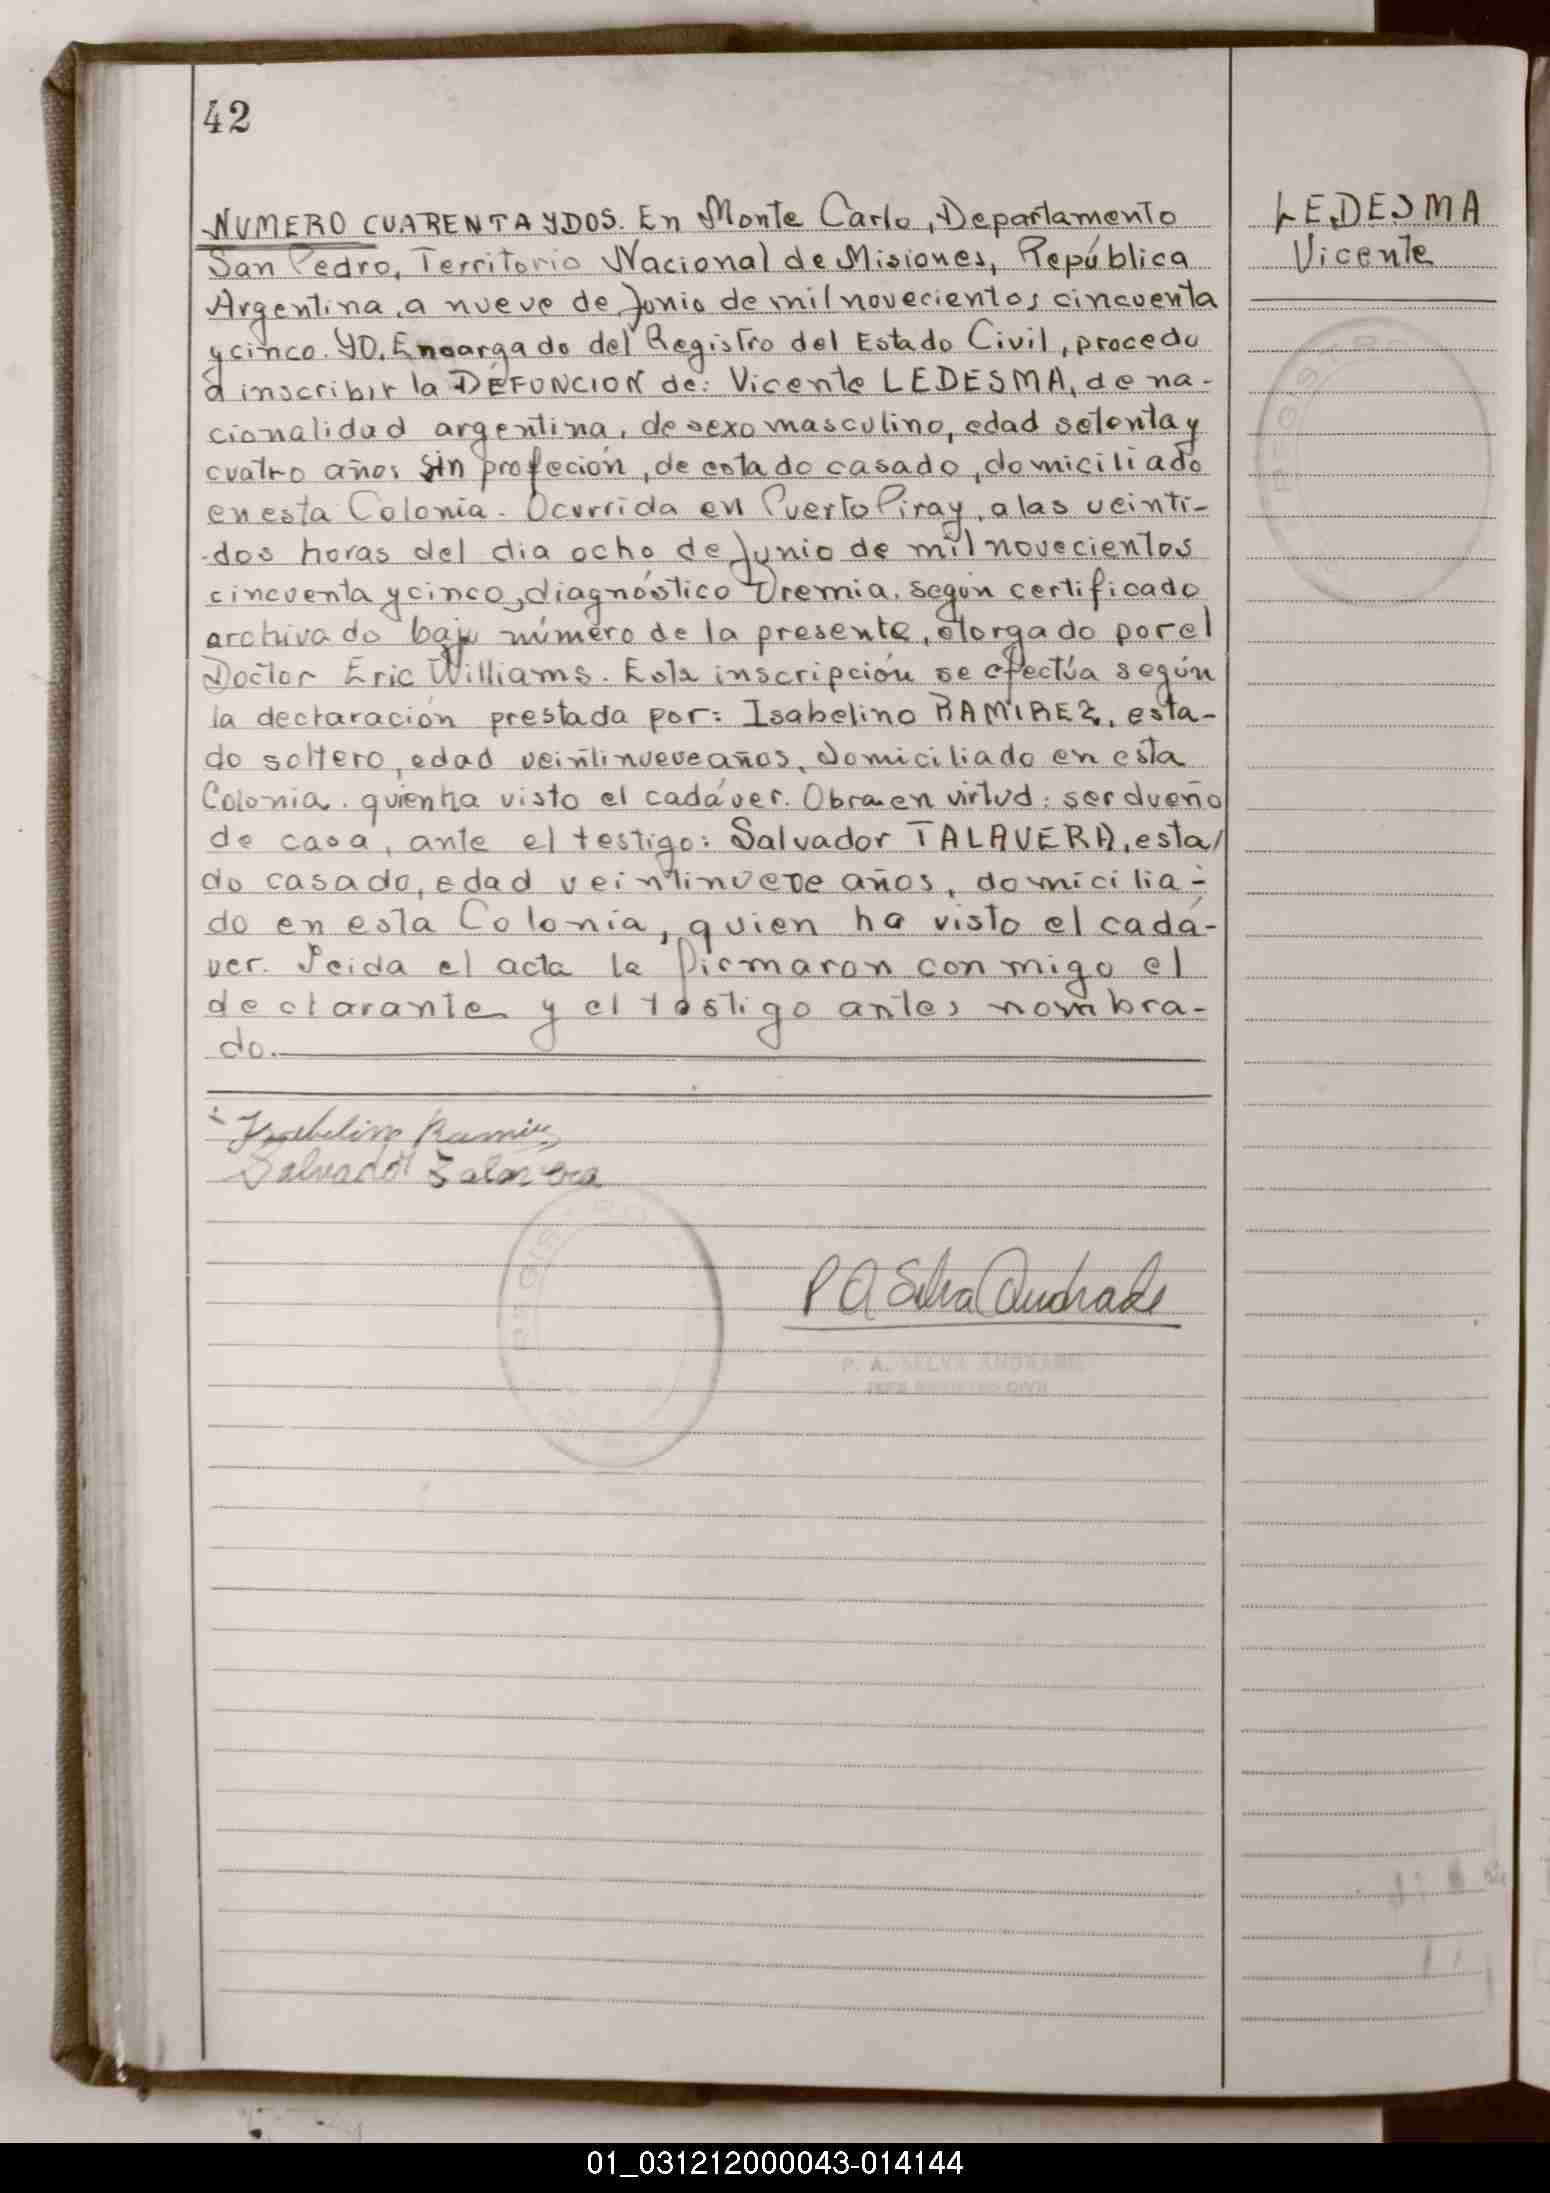 42
NUMERO CUARENTA Y DOS. En Monte Carlo, Departamento
San Pedro, Territorio Nacional de Misiones, República
Argentina, a nueve de Junio de mil novecientos cincuenta
y cinco. YO, Encargado del Registro del Estado Civil, procedo
a inscribir la DEFUNCION de: Vicente LEDESMA, de na-
cionalidad argentina, de sexo masculino, edad setenta y
cuatro años sin profeción, de estado casado, domiciliado
en esta Colonia. Ocurrida en Puerto Piray, a las veinti-
dos horas del dia ocho de Junio de mil novecientos
cincuenta y cinco, diagnóstico Uremia, según certificado
archivado bajo número de la presente, otorgado por el
Doctor Eric Williams. Esta inscripción se efectúa según
la declaración prestada por: Isabelino RAMIREZ, esta-
do soltero, edad veintinueve años, domiciliado en esta
Colonia. quien ha visto el cadáver. Obra en virtud: ser dueño
de casa, ante el testigo: Salvador TALAVERA, esta/
do casado, edad veintinueve años, domicilia-
do en esta Colonia, quien ha visto el cadá-
ver. Leida el acta la firmaron conmigo el
declarante y el testigo antes nombra-
do.
LEDESMA
Vicente
Isabelino Ramirez
Salvador Talavera
REGISTRO
P A Selva Andrade
P. A. SELVA ANDRADE
JEFE REGISTRO CIVIL
01_031212000043-014144